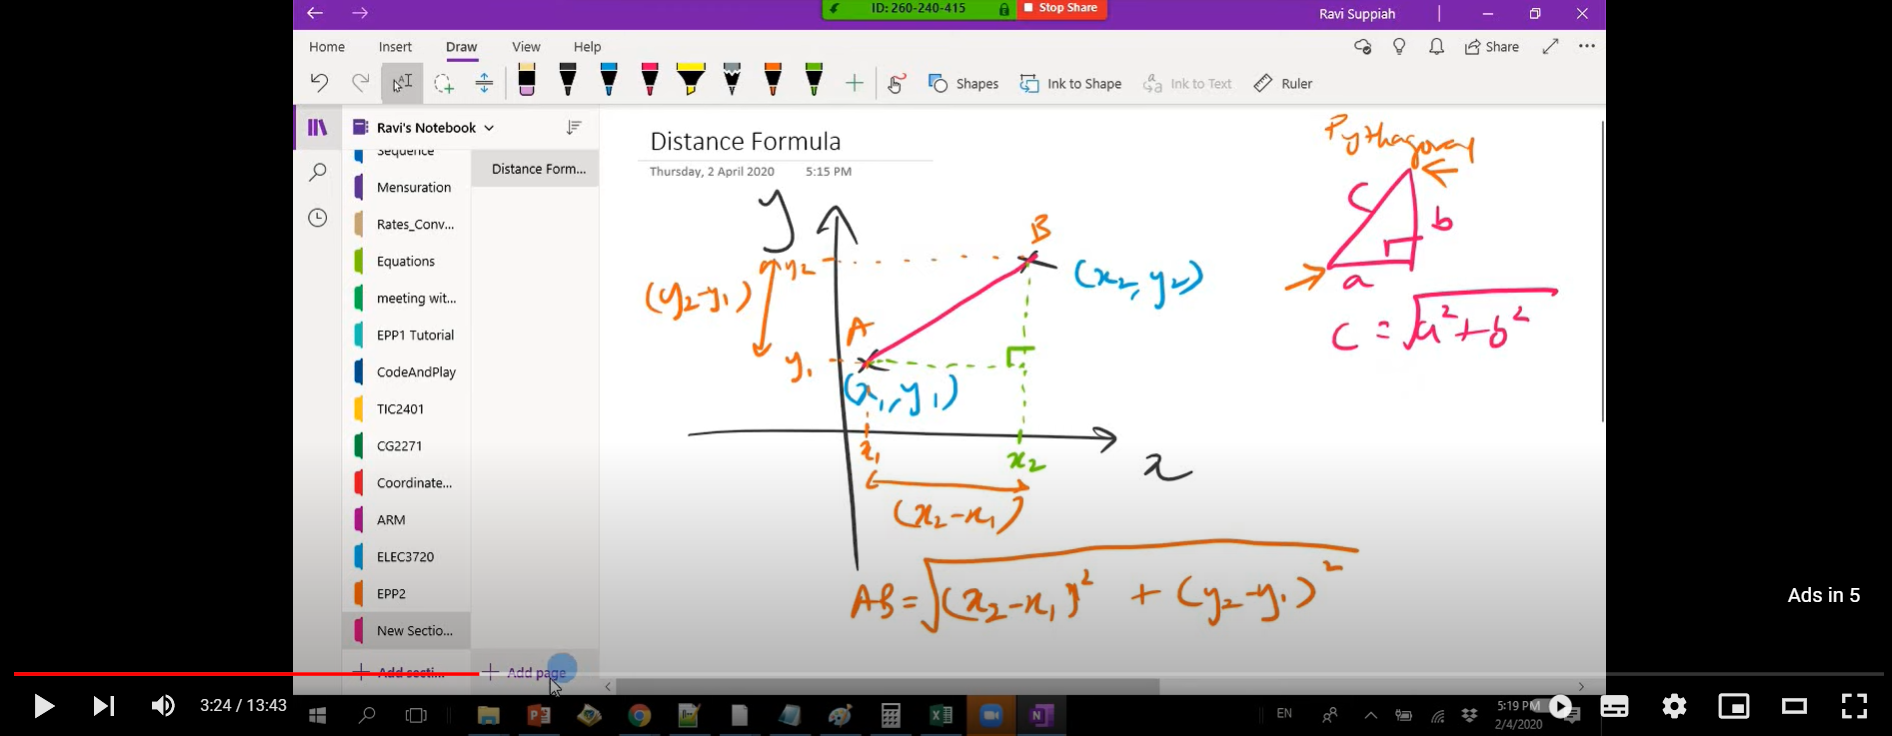 ID: 260-240-415
Stop Share
Ravi Suppiah
Home
Insert
Draw
View
Help
Share
Shapes
Ink to Shape
Ink to Text
Ruler
Ravi's Notebook
Sequence
Mensuration
Rates_Conv...
Equations
meeting wit...
EPP1 Tutorial
CodeAndPlay
TIC2401
CG2271
Coordinate...
ARM
ELEC3720
EPP2
New Sectio...
Add secti...
Distance Form...
Add page
Distance Formula
Thursday, 2 April 2020 5:15 PM
y
B
y₂
(x₂, y₂)
(y₂-y₁)
A
y₁
(x₁, y₁)
x₁
x₂
x
(x₂-x₁)
AB = √(x₂-x₁)² + (y₂-y₁)²
c
b
a
c = √a²+b²
Ads in 5
3:24 / 13:43
EN
5:19 PM
2/4/2020